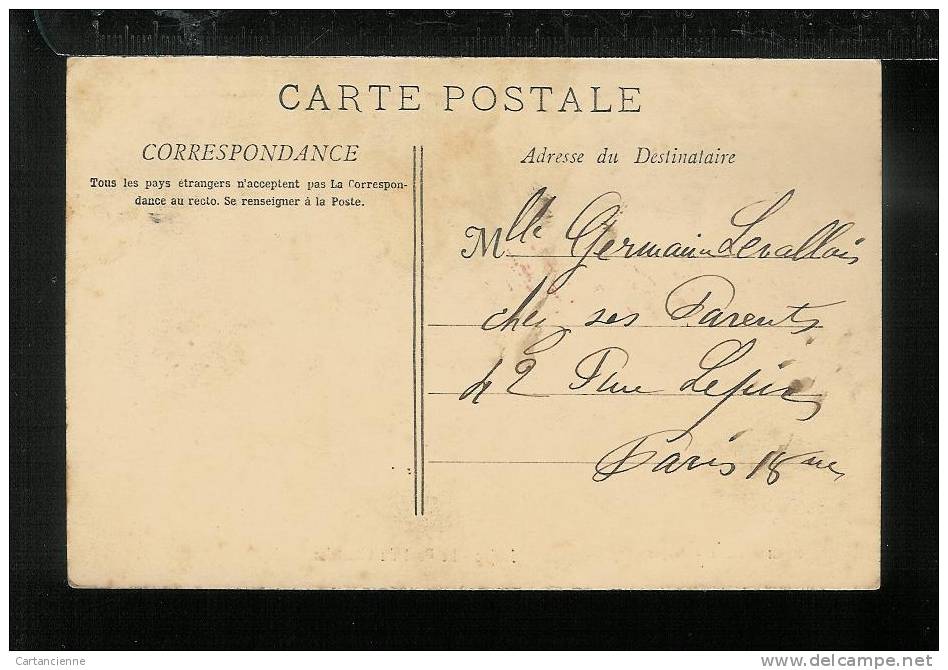 CARTE POSTALE
CORRESPONDANCE
Tous les pays étrangers n'acceptent pas La Correspon-
dance au recto. Se renseigner à la Poste.
Adresse du Destinataire
Mlle Germaine Levallois
chez ses Parents
42 Rue Lepic
Paris 18me
Cartancienne
www.delcampe.net